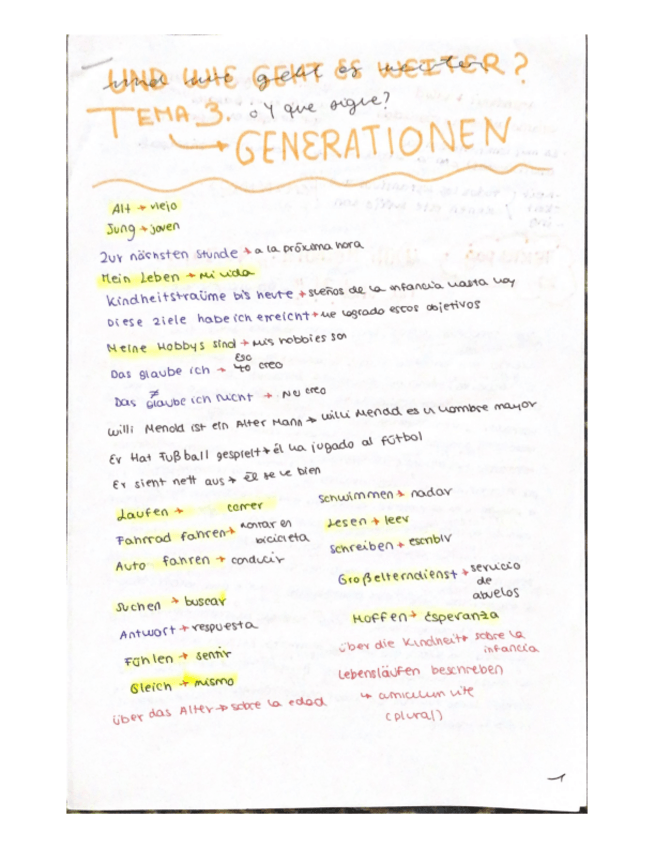 UND WIE GEHT ES WEITER?
und wie geht es weiter
TEMA 3. ¿Y que sigue?
GENERATIONEN
Alt → viejo
Jung → joven
Zur nächsten Stunde → a la próxima hora
Mein Leben → Mi vida
Kindheitsträume bis heute → sueños de la infancia hasta hoy
Diese Ziele habe ich erreicht → He logrado estos objetivos
Meine Hobbys sind → Mis hobbies son
Eso
Das glaube ich → yo creo
Das glaube ich nicht → No creo
Willi Menold ist ein Alter Mann → Willi Menold es un hombre mayor
Er Hat Fußball gespielt → él ha jugado al fútbol
Er sieht nett aus → él se ve bien
Laufen → correr
Fahrrad fahren → montar en bicicleta
Auto fahren → conducir
Suchen → buscar
Antwort → respuesta
Fühlen → sentir
Gleich → mismo
über das Alter → sobre la edad
Schwimmen → nadar
Lesen → leer
Schreiben → escribir
Großelterndienst → servicio
de
abuelos
Hoffen → Esperanza
über die Kindheit → sobre la
infancia
Lebensläufen beschreben
↳ curriculum vite
(plural)
1